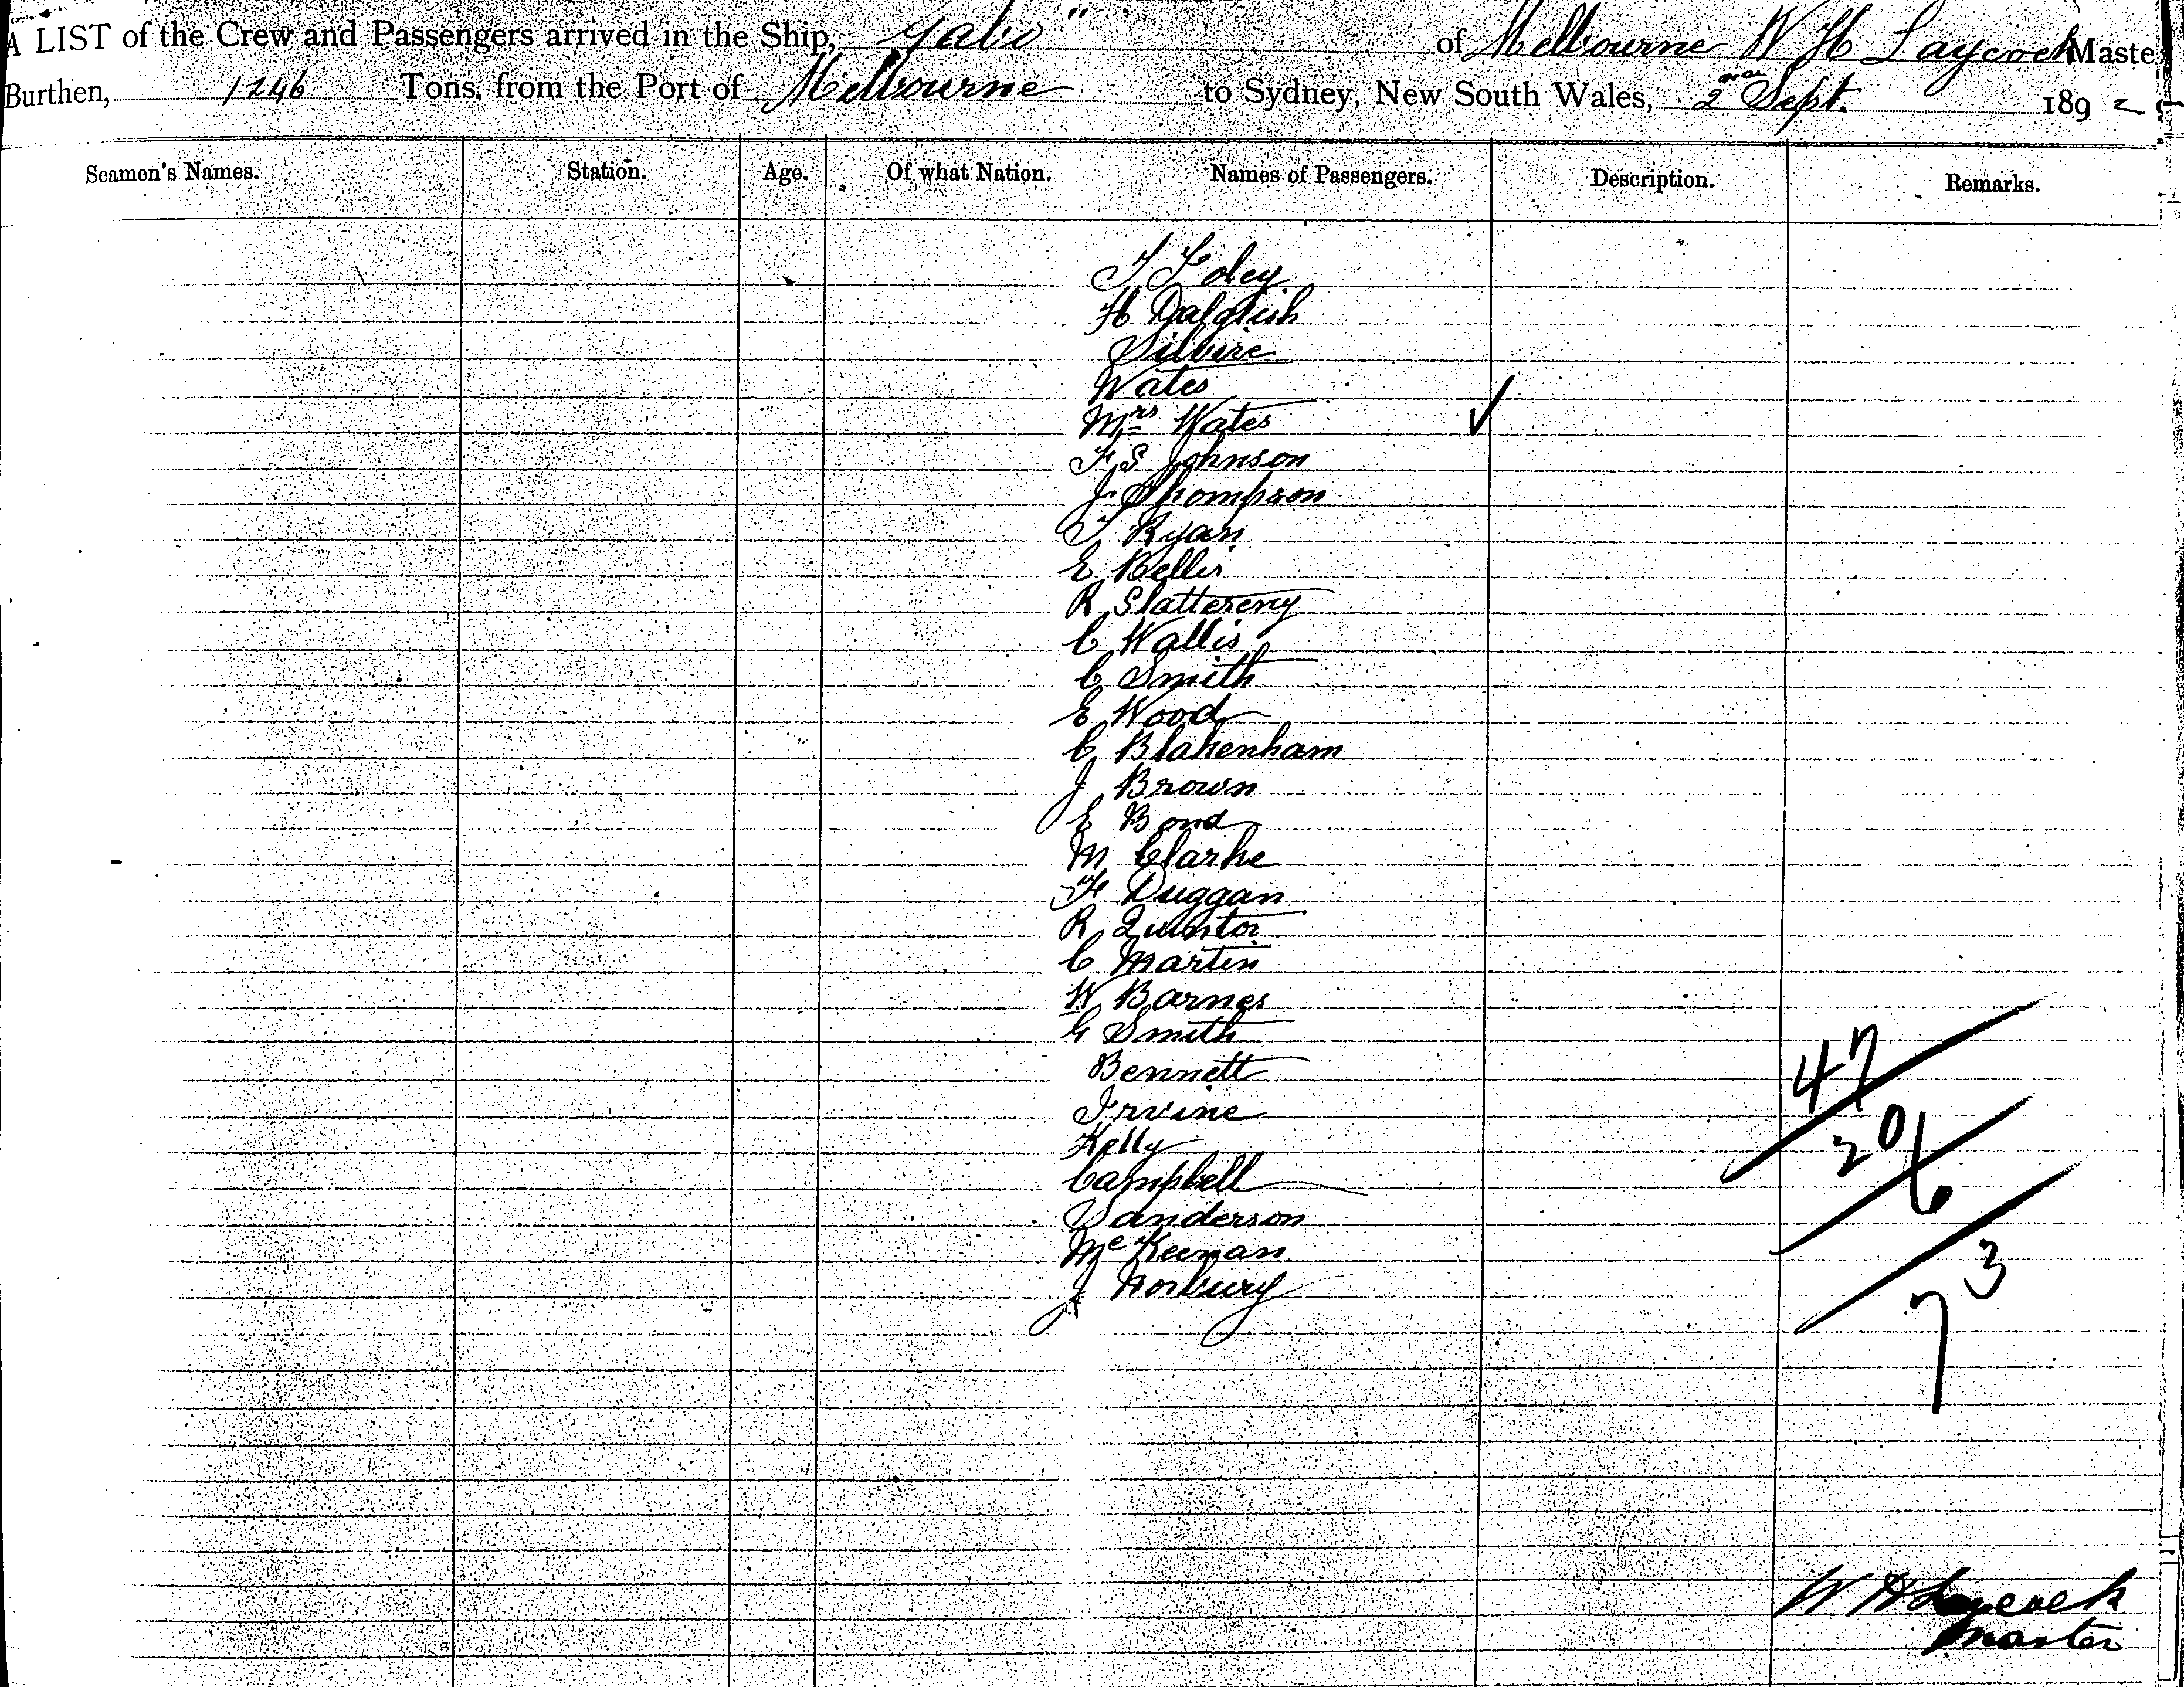 A LIST of the Crew and Passengers arrived in the Ship, Gabo" of Melbourne W H Laycock Maste
Burthen, 1246 Tons, from the Port of Melbourne to Sydney, New South Wales, 2nd Sept. 1892
Seamen's Names. Station. Age. Of what Nation. Names of Passengers. Description. Remarks.
T Foley
H Dalglish
Wates
Mrs Wates ✓
F S Johnson
J Thompson
T Ryan
E Bellis
R Slattereny
C Wallis
C Smith
E Wood
C Blakenham
J Brown
E Bond
M Clarke
H Duggan
R Quinton
C Martin
W Barnes
G Smith
Bennett
Irvine
47
Kelly
20
Campbell
6
Sanderson
McKeenan
3
J Norbury
7
W H Laycock
Master